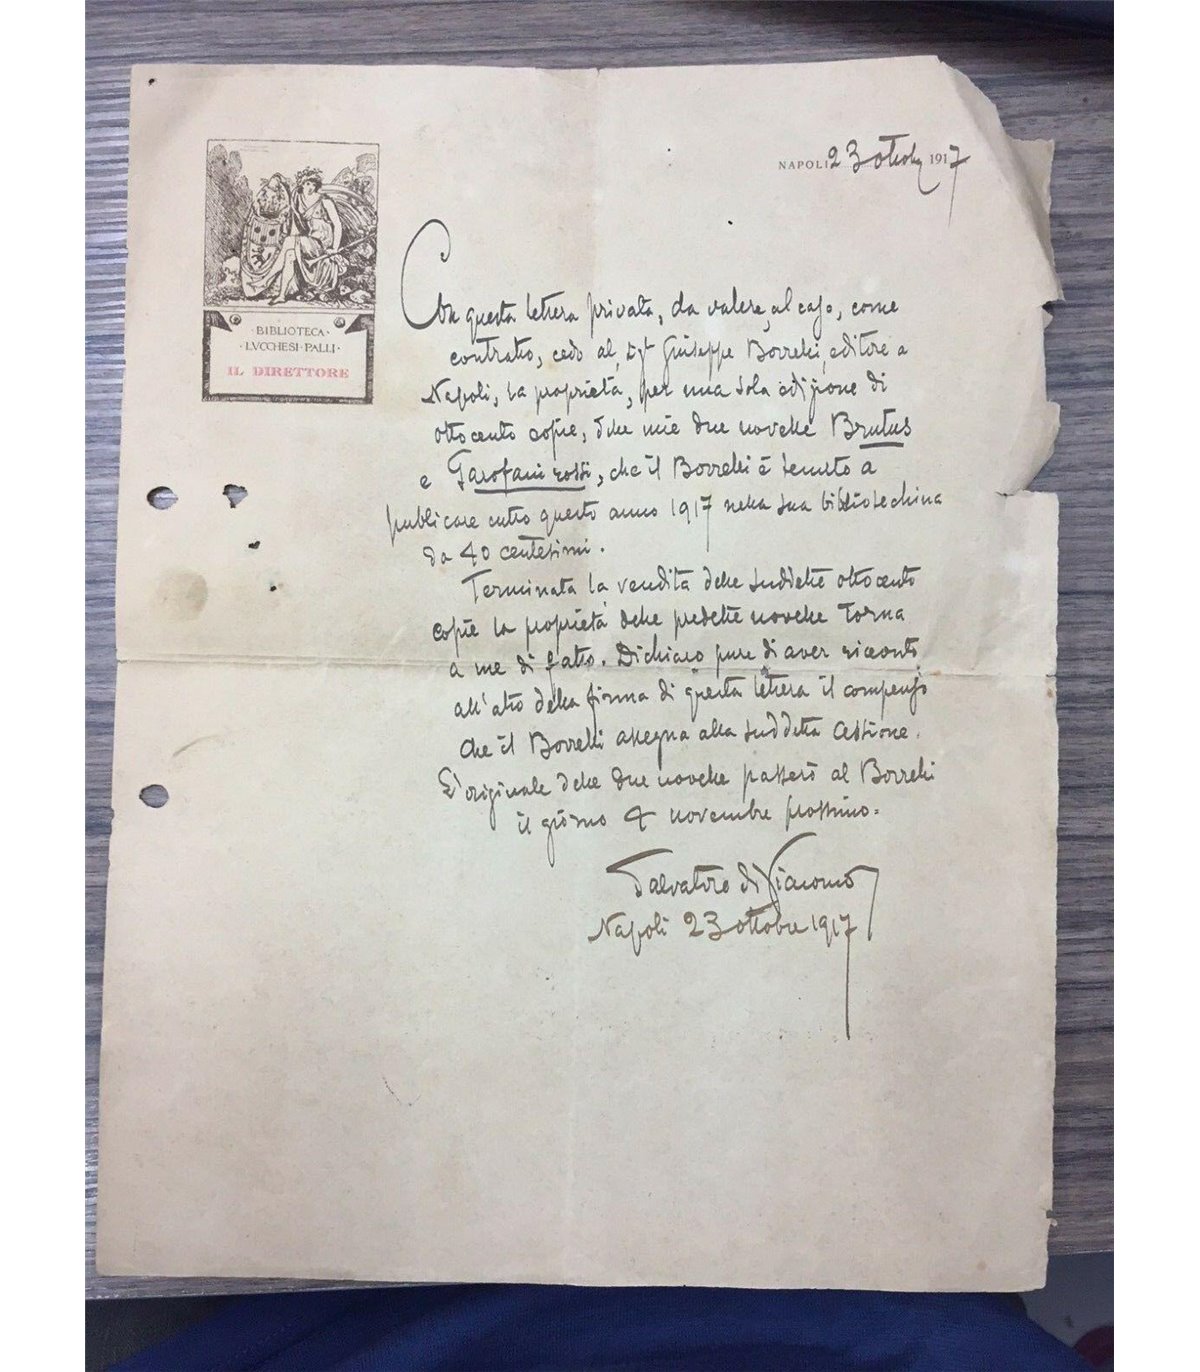 NAPOLI 23 ottobre 1917
· BIBLIOTECA ·
· LVCCHESI · PALLI ·
IL DIRETTORE
Con questa lettera privata, da valere, al caso, come
contratto, cedo al Sigr Giuseppe Borrelli, editore a
Napoli, la proprietà, per una sola edizione di
ottocento copie, delle mie due novelle Brutus
e Garofani rossi, che il Borrelli è tenuto a
publicare entro questo anno 1917 nella sua bibliotechina
da 40 centesimi.
Terminata la vendita delle suddette ottocento
copie la proprietà delle predette novelle torna
a me di fatto. Dichiaro pure di aver ricevuto
all'atto della firma di questa lettera il compenso
che il Borrelli assegna alla suddetta cessione.
L'originale delle due novelle passerò al Borrelli
il giorno 4 novembre prossimo.
Salvatore di Giacomo
Napoli 23 ottobre 1917